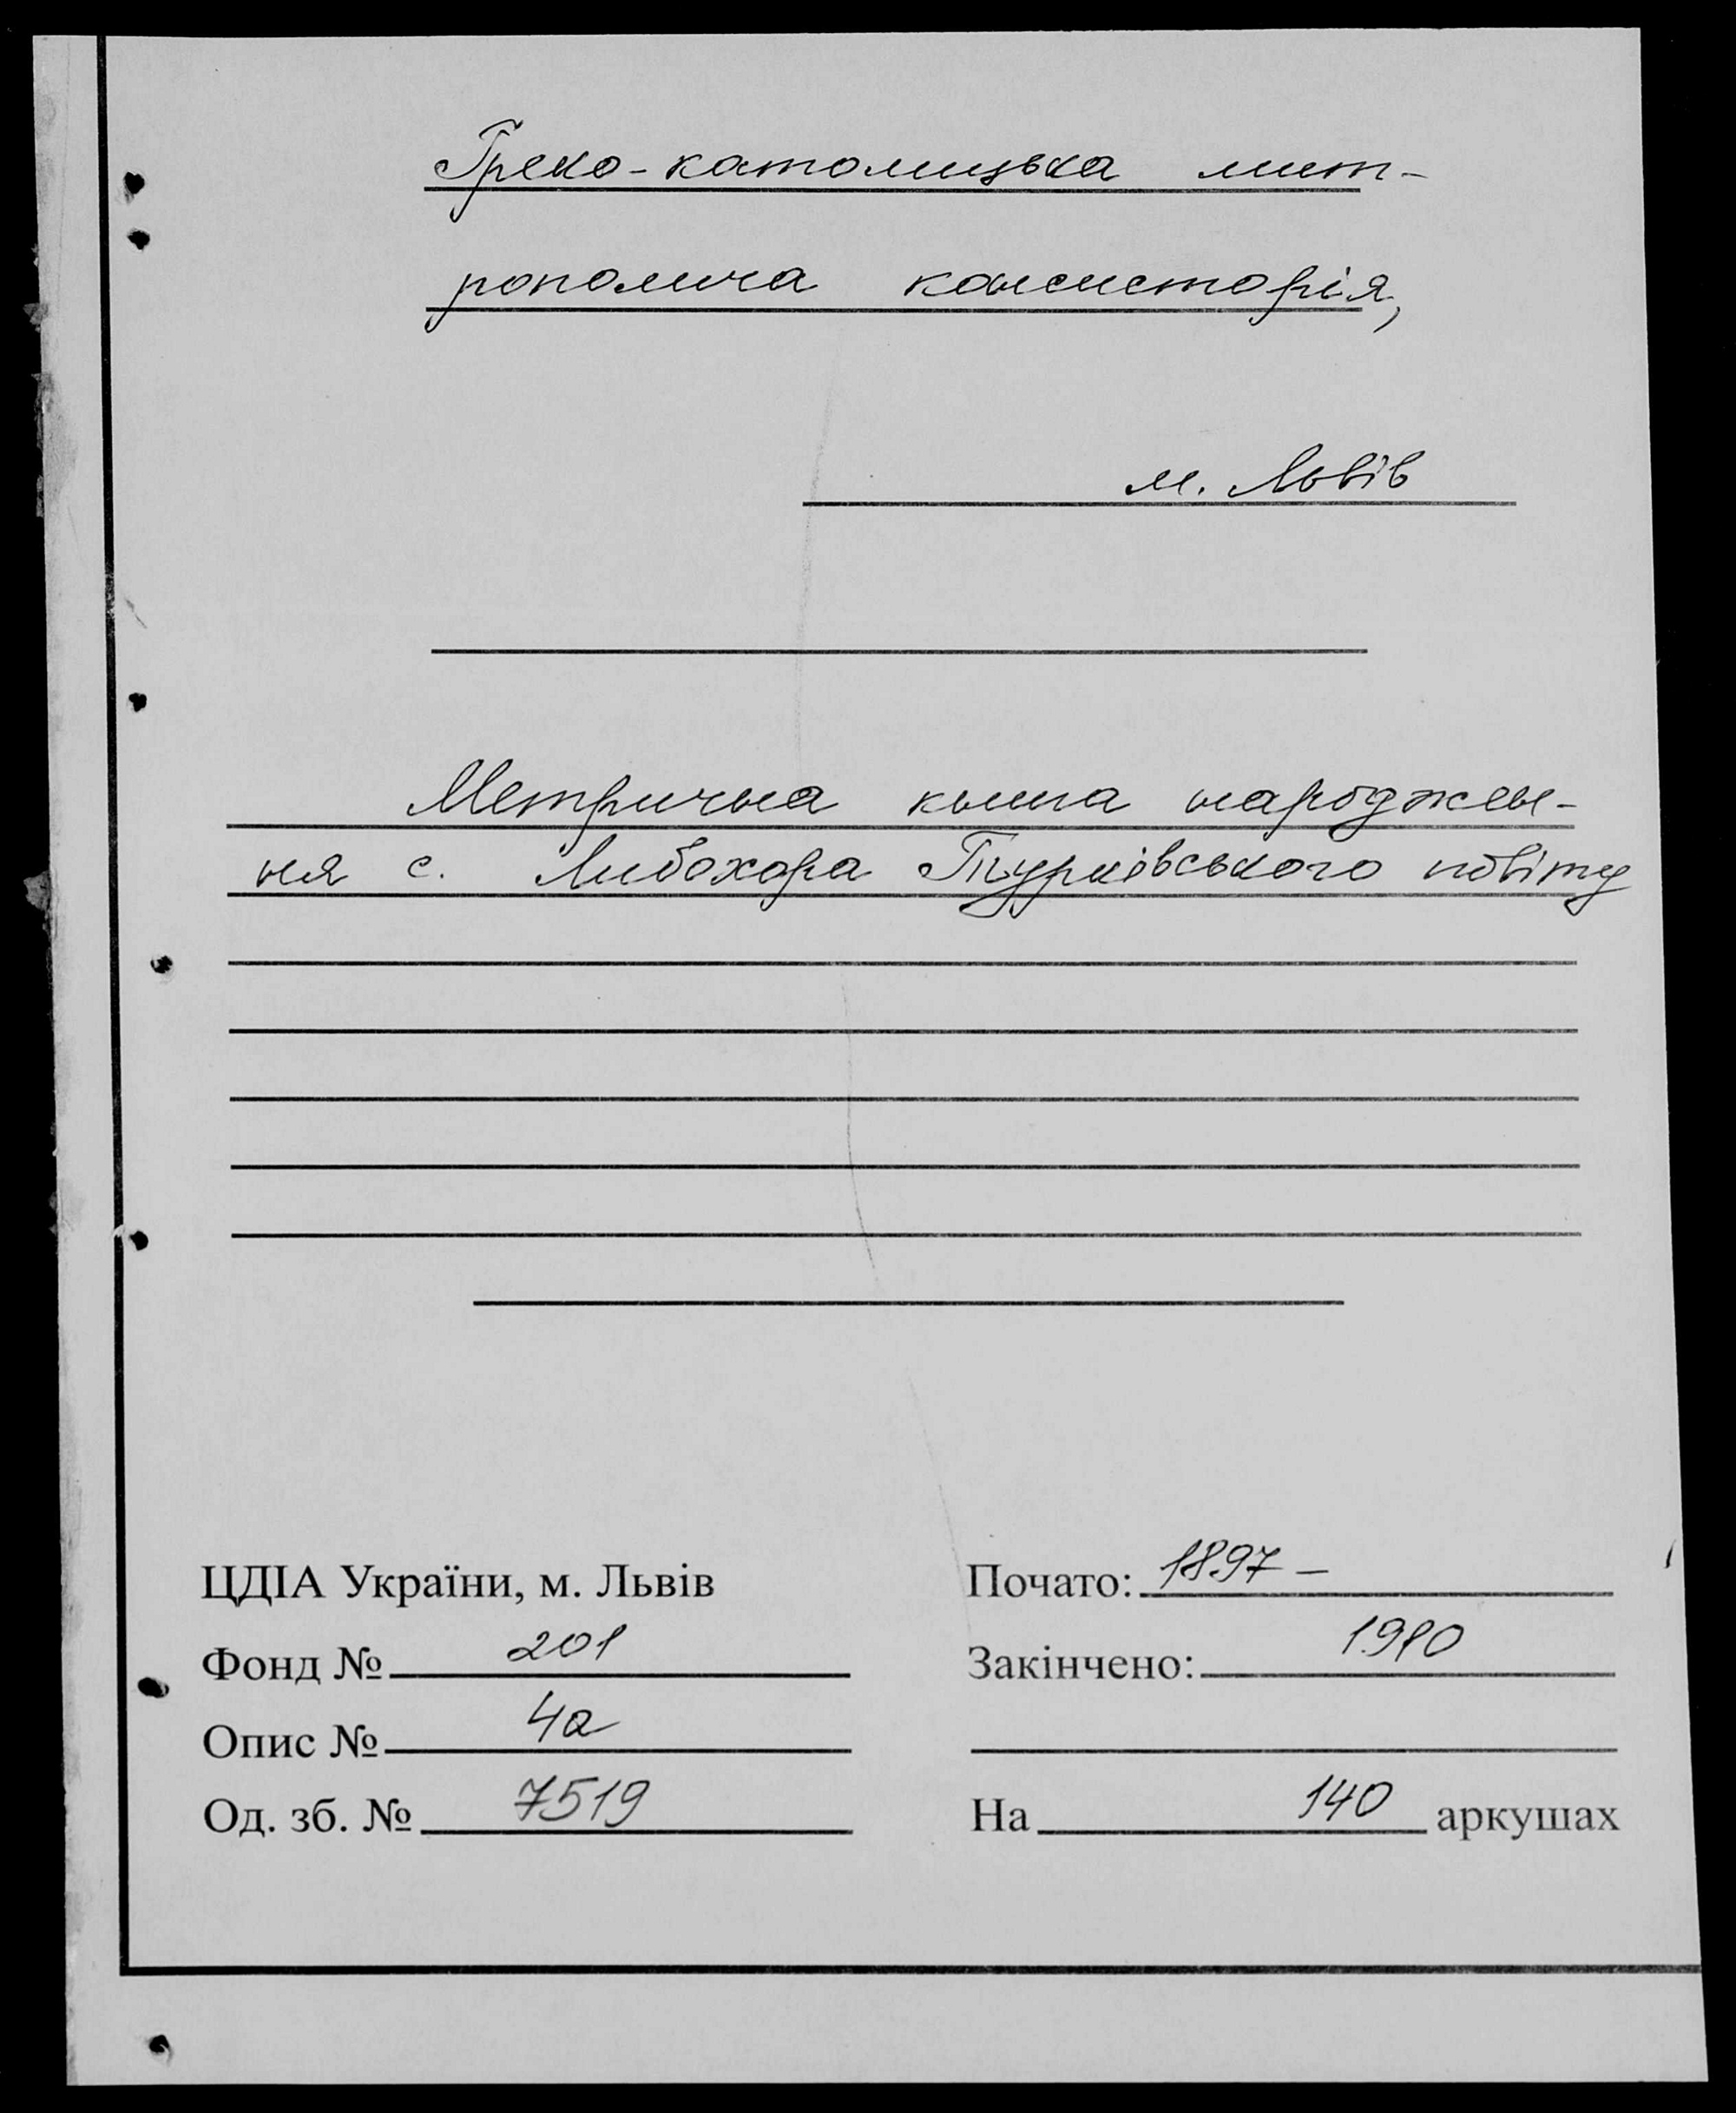 Греко-католицька мит-
рополича консисторія,
м. Львів
Метрична книга народжен-
ня с. Либохора Турківського повіту
ЦДІА України, м. Львів
Почато: 1897 –
Фонд № 201
Закінчено: 1910
Опис № 4а
Од. зб. № 7519
На 140 аркушах